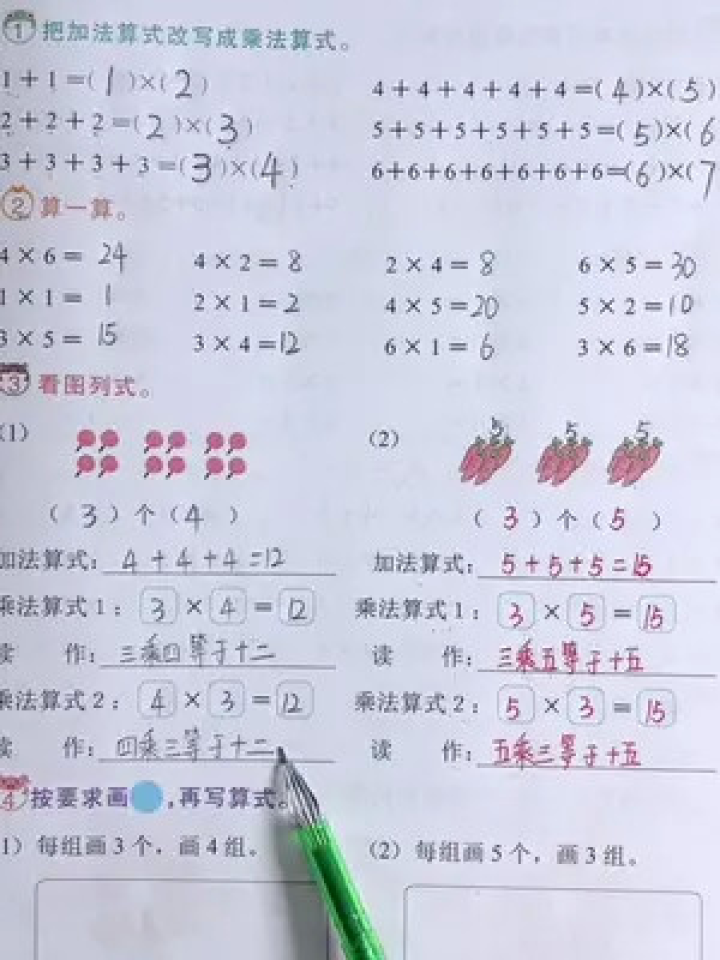 1 把加法算式改写成乘法算式。
1+1=(1)×(2) 4+4+4+4+4=(4)×(5)
2+2+2=(2)×(3) 5+5+5+5+5+5=(5)×(6
3+3+3+3=(3)×(4) 6+6+6+6+6+6+6=(6)×(7
2 算一算。
4×6=24 4×2=8 2×4=8 6×5=30
1×1=1 2×1=2 4×5=20 5×2=10
3×5=15 3×4=12 6×1=6 3×6=18
3 看图列式。
(1) (2) 5 5 5
(3)个(4) (3)个(5)
加法算式:4+4+4=12 加法算式:5+5+5=15
乘法算式1:3×4=12 乘法算式1:3×5=15
读 作:三乘四等于十二 读 作:三乘五等于十五
乘法算式2:4×3=12 乘法算式2:5×3=15
读 作:四乘三等于十二 读 作:五乘三等于十五
4 按要求画 ,再写算式。
1)每组画3个,画4组。 (2)每组画5个,画3组。